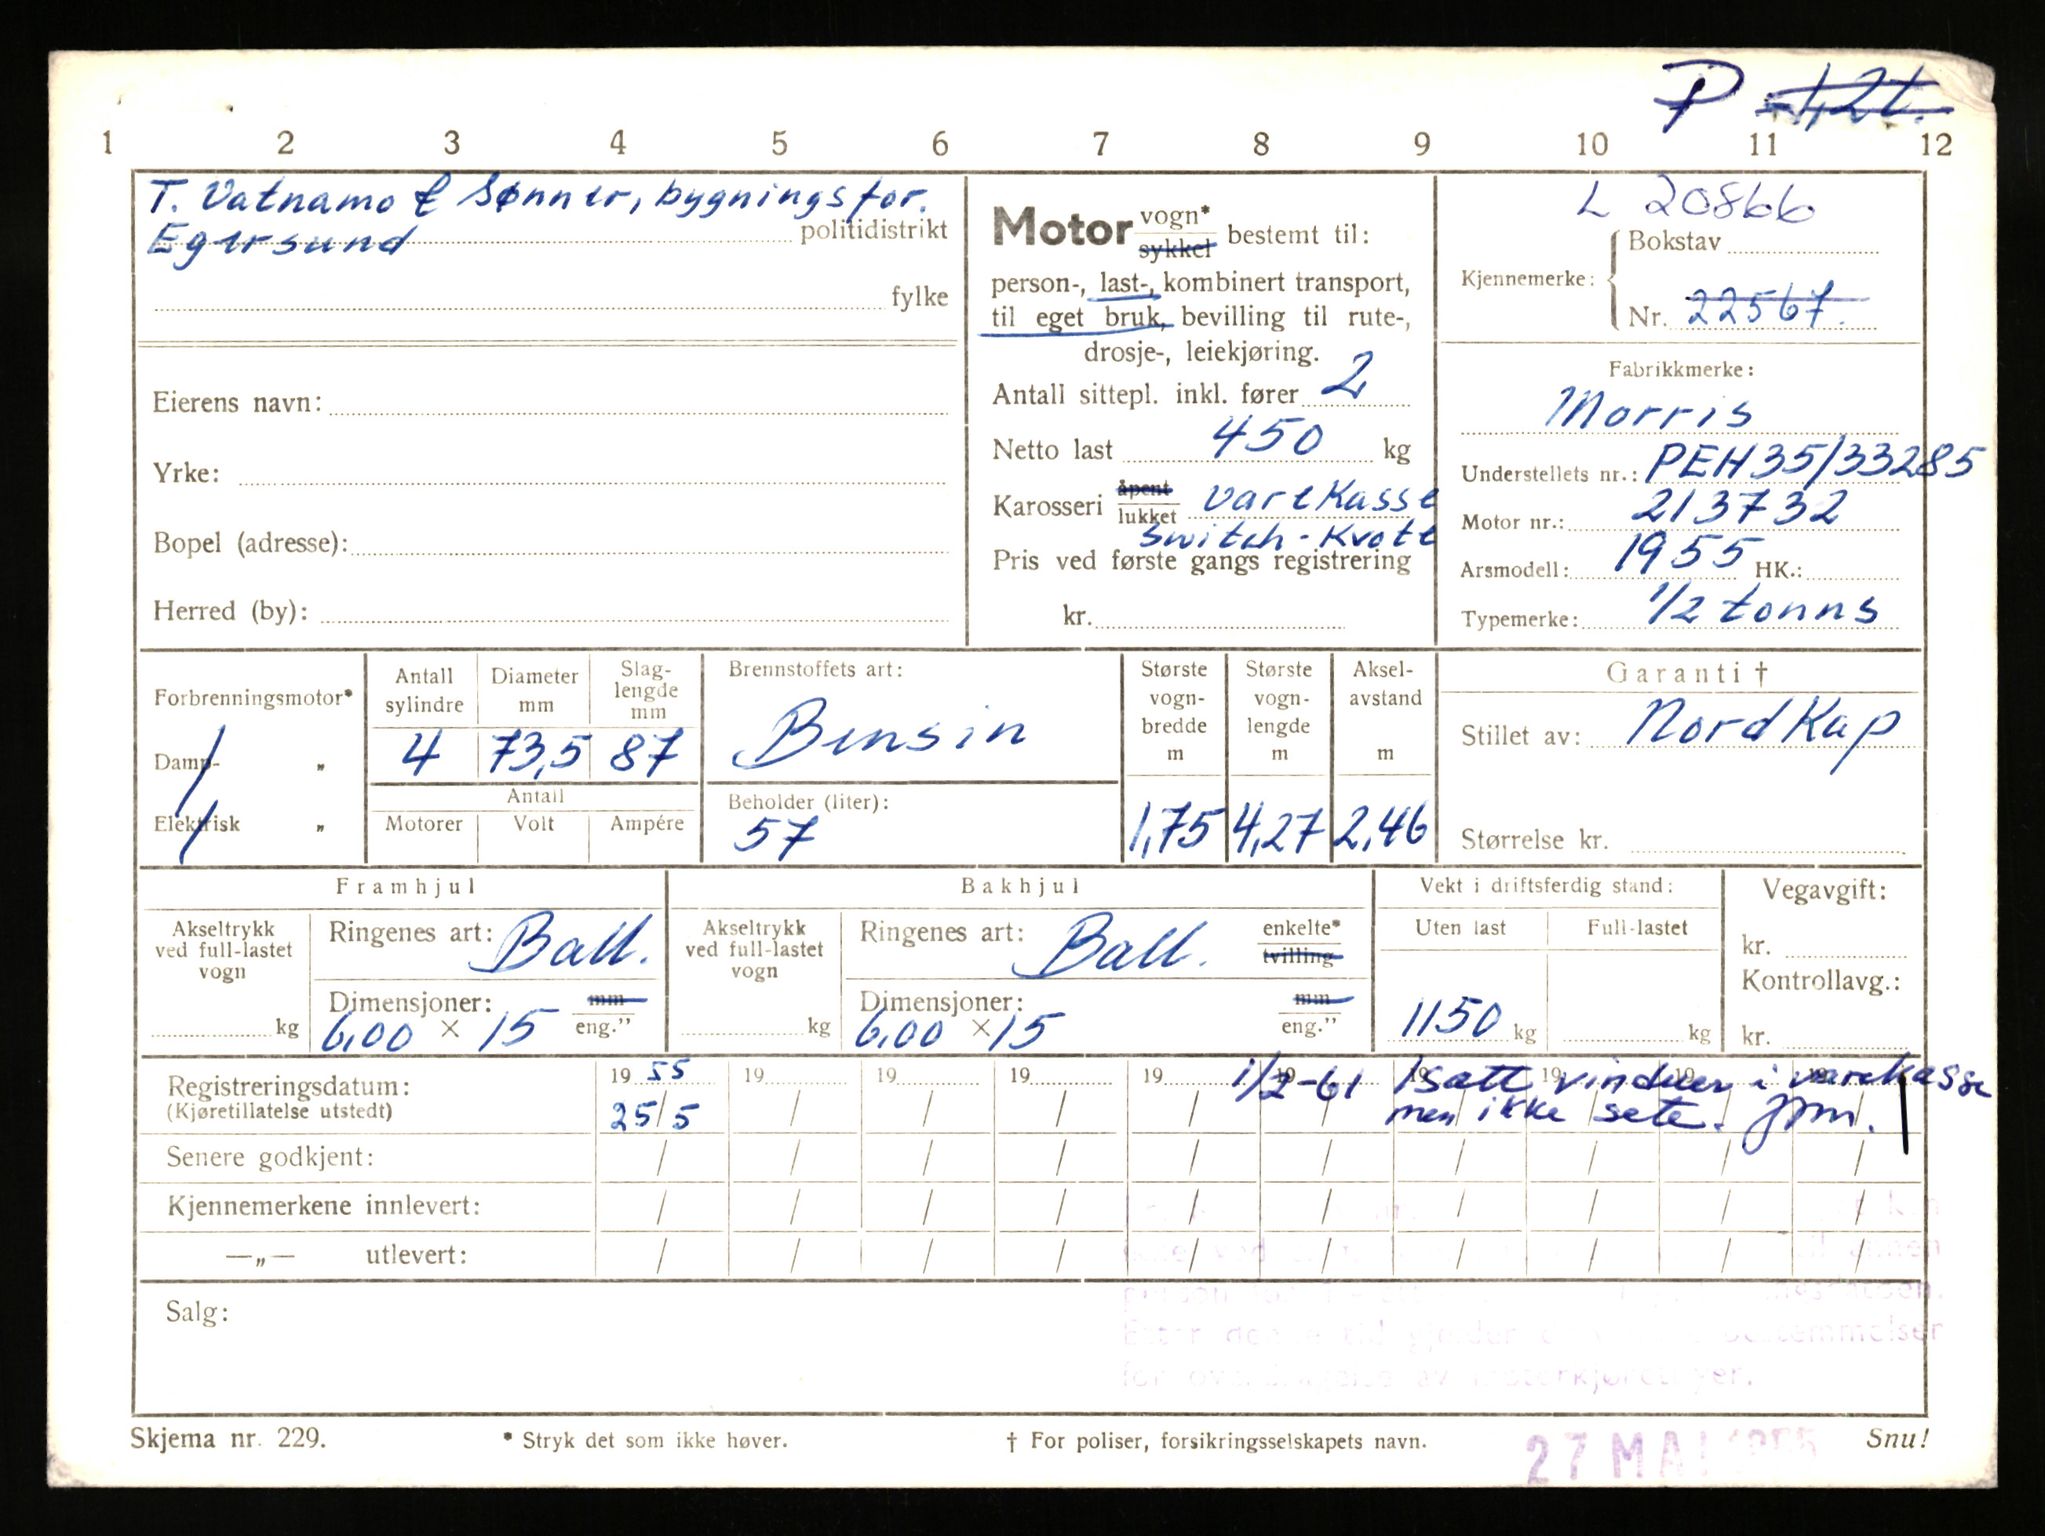 P 1,2 t.
1 2 3 4 5 6 7 8 9 10 11 12
T. Vatnamo & Sønner, bygningsfor.
Egersund politidistrikt
fylke
Eierens navn:
Yrke:
Bopel (adresse):
Herred (by):
Motor vogn* sykkel bestemt til:
person-, last-, kombinert transport,
til eget bruk, bevilling til rute-,
drosje-, leiekjøring.
Antall sittepl. inkl. fører 2
Netto last 450 kg
Karosseri åpent lukket varekasse
switch-kvote
Pris ved første gangs registrering
kr.
L 20866
Kjennemerke: Bokstav
Nr. 22567.
Fabrikkmerke:
Morris
Understellets nr.: PEH35/33285
Motor nr.: 213732
Arsmodell: 1955 HK.:
Typemerke: 1/2 tonns
Forbrenningsmotor*
Damp- „
Elektrisk „
Antall sylindre
4
Diameter mm
73,5
Slag-lengde mm
87
Antall
Motorer Volt Ampére
Brennstoffets art:
Bensin
Beholder (liter):
57
Største vogn-bredde m
1,75
Største vogn-lengde m
4,27
Aksel-avstand m
2,46
Garanti †
Stillet av: Nordkap
Størrelse kr.
Framhjul
Akseltrykk ved full-lastet vogn
kg
Ringenes art: Ball.
Dimensjoner: mm
6,00 × 15 eng.”
Bakhjul
Akseltrykk ved full-lastet vogn
kg
Ringenes art: Ball. enkelte* tvilling
Dimensjoner: mm
6,00 × 15 eng.”
Vekt i driftsferdig stand:
Uten last Full-lastet
1150 kg kg
Vegavgift:
kr.
Kontrollavg.:
kr.
Registreringsdatum: 19 55 19 19 19 19 1/2-61 Isatt vinduer i varekasse
(Kjøretillatelse utstedt) 25/5 men ikke sete.
Senere godkjent:
Kjennemerkene innlevert:
—„— utlevert:
Salg:
Skjema nr. 229.
* Stryk det som ikke høver.
† For poliser, forsikringsselskapets navn.
27 MAI 1955
Snu!